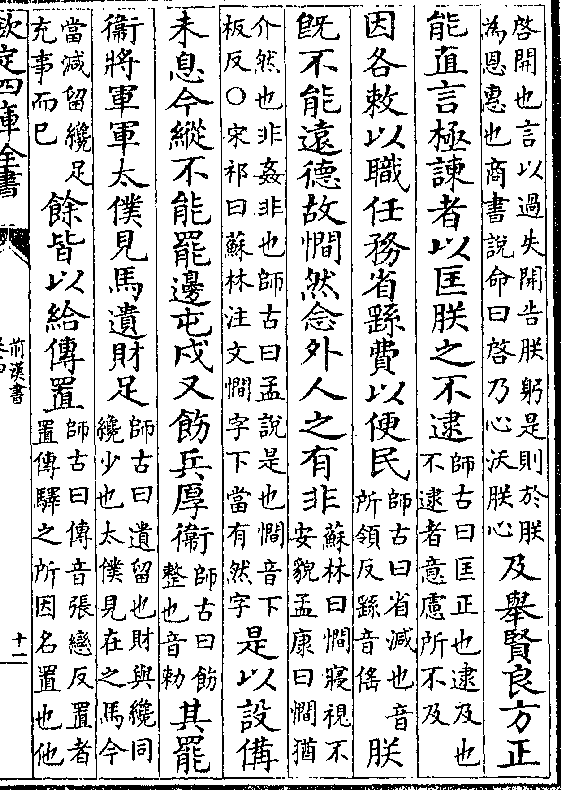 啓開也言以過失開告朕躬是則於朕
為恩惠也商書説命曰啓乃心沃朕心
及舉賢良方正
能直言極諫者以匡朕之不逮
師古曰匡正也逮及也
不逮者意慮所不及
因各敕以職任務省繇費以便民
師古曰省減也音
所領反繇音傜
朕
既不能遠德故憪然念外人之有非
蘇林曰憪寢視不
安貌孟康曰憪猶
介然也非姦非也師古曰孟說是也憪音下
板反○宋祁曰蘇林注文憪字下當有然字
是以設備
未息今縱不能罷邊屯戍又飭兵厚衞
師古曰飭
整也音勅
其罷
衞將軍軍太僕見馬遺財足
師古曰遺留也財與纔同
纔少也太僕見在之馬今
當減留纔足
充事而已
餘皆以給傳置
師古曰傳音張戀反置者
置傳驛之所因名置也他
欽定四庫全書
前漢書
卷四
十一